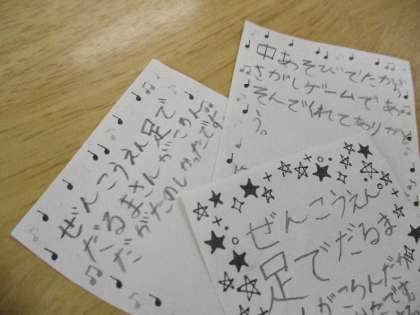 ぜんこうえん足で
だるまさんがころん
だがたのしかったです
中あそびでたから
さがしゲームであ
そんでくれてありがと
う。
ぜんこうえん
足でだるま
さんがころんだが